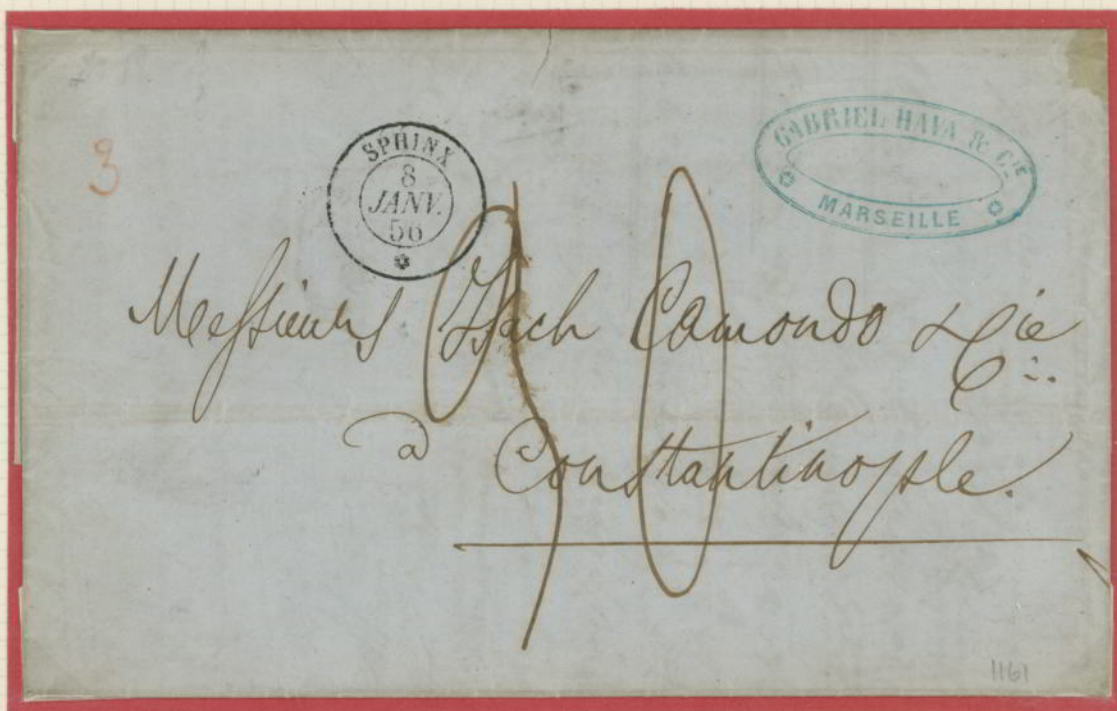 3
SPHINX
8
JANV.
56
GABRIEL HAVA & CIE
MARSEILLE
90
Messieurs Isach Camondo & Cie
à Constantinople.
1161